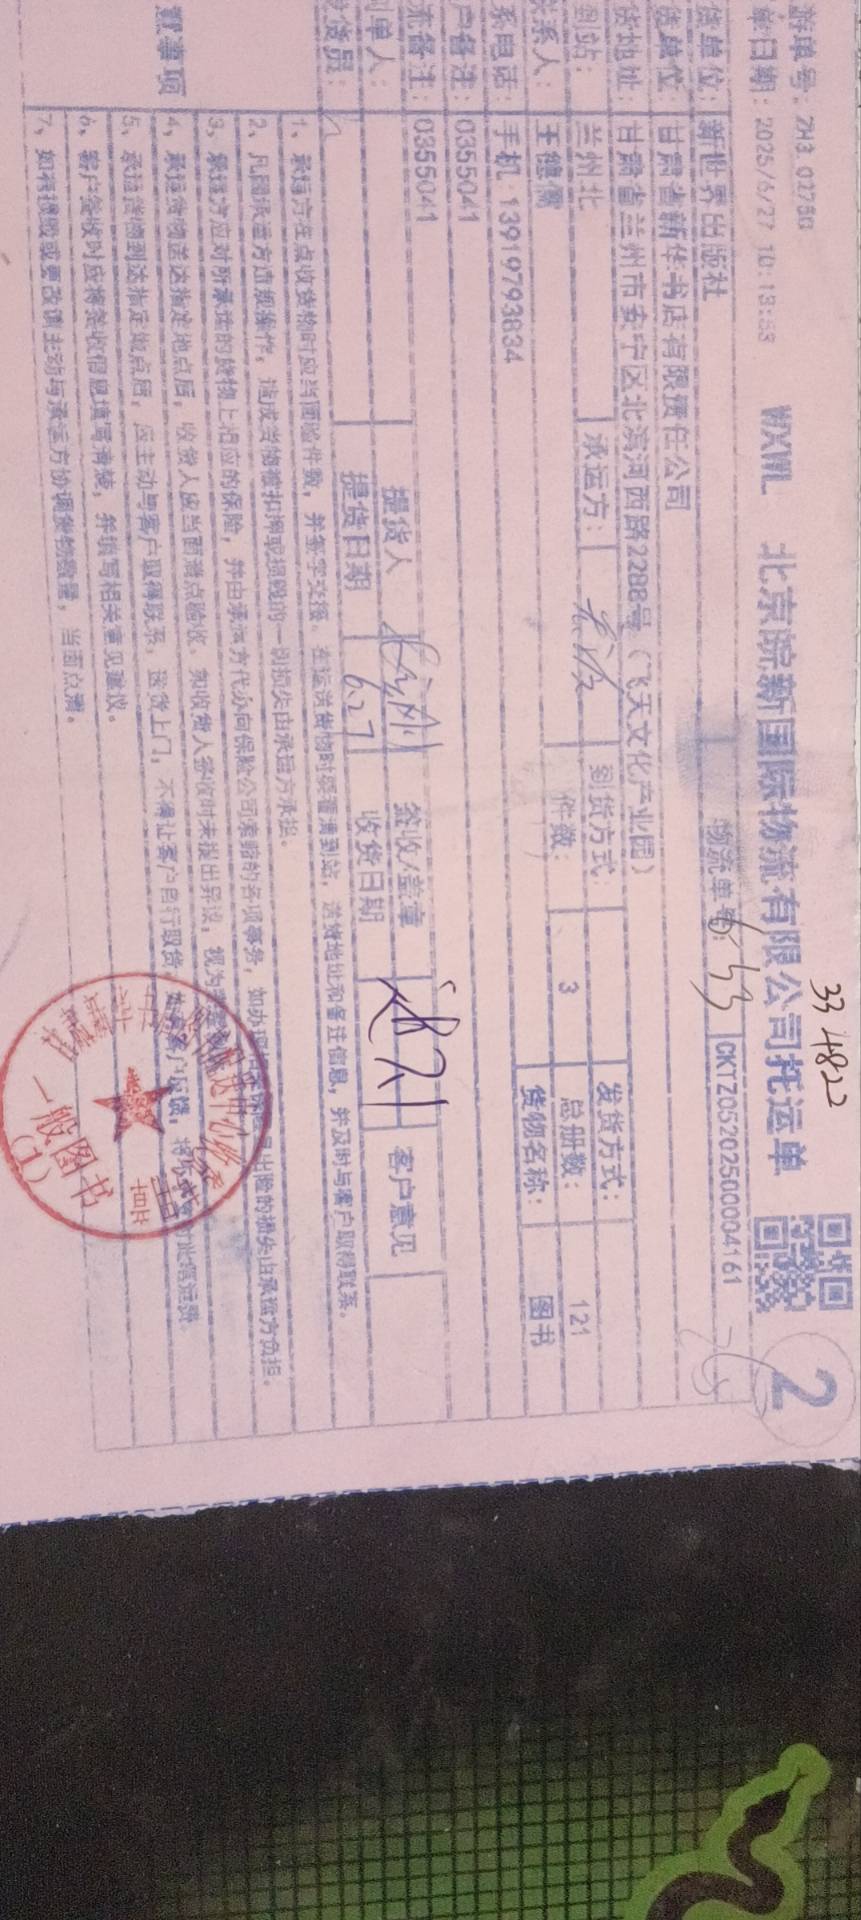 33 4822
游单号：ZH3 02758
WXWL 北京皖新国际物流有限公司托运单 2
单日期：2025/6/27 10:13:53
物流单号： CKTZ0520250004161
货单位：新世界出版社
货单位：甘肃省新华书店有限责任公司
货地址：甘肃省兰州市安宁区北滨河西路2288号（飞天文化产业园）
到站：兰州北 承运方： 到货方式： 发货方式：
联系人：王德儒 件数：3 总册数：121
系电话：手机 13919793834 货物名称：图书
户备注：0355041
流备注：0355041
制单人： 提货人 签收/盖章 客户意见
发货员： 提货日期 6.27 收货日期
意事项
1、承运方在点收货物时应当面验件数，并签字交接。在运送货物时要看清到站，送货地址和备注信息，并及时与客户取得联系。
2、凡因承运方违规操作，造成货物被扣押或损毁的一切损失由承运方承担。
3、承运方应对所承运的货物上相应的保险，并由承运方代办向保险公司索赔的各项事务，如办理 出险的损失由承运方负担。
4、承运货物送达指定地点后，收货人应当面清点验收，如收货人签收时未提出异议，视为
5、承运货物到达指定地点后，应主动与客户取得联系，送货上门，不得让客户自行取货，
6、客户签收时应将签收信息填写清楚，并填写相关意见建议。
7、如有损毁或更改请主动与承运方协调货物数量，当面点清。
一般图书
(1)